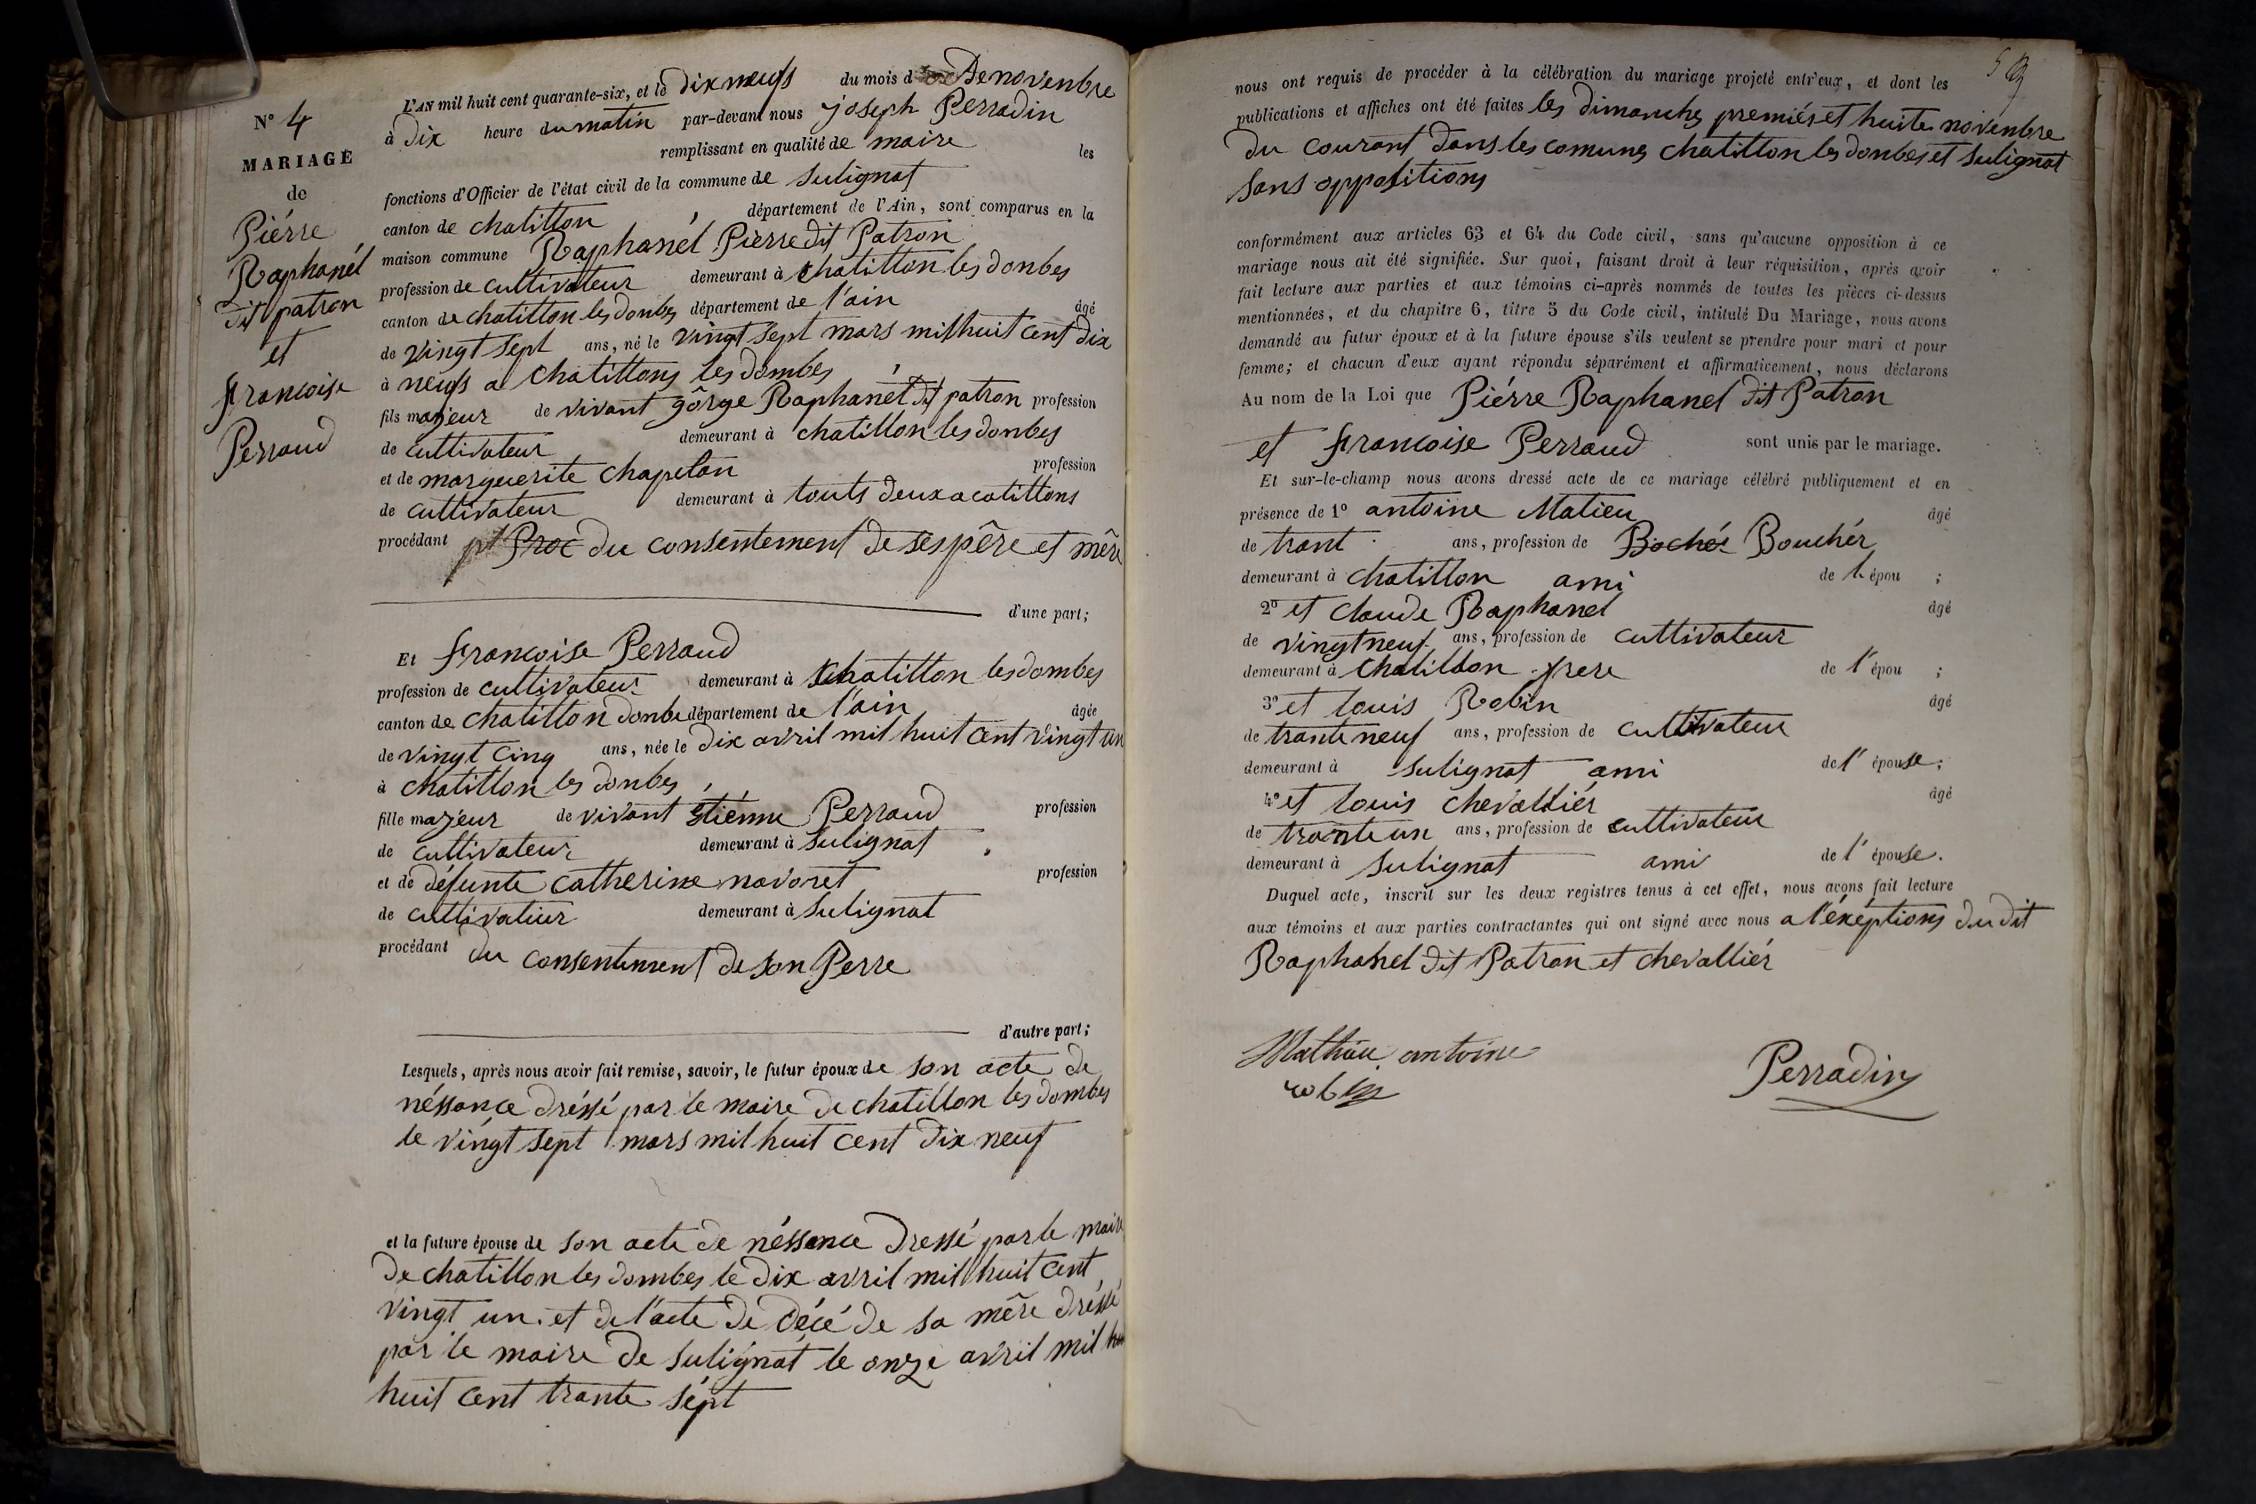 N° 4
MARIAGE
de
Piérre
Raphanél
dit patron
et
françoise
Perraud
L'AN mil huit cent quarante-six, et le dix neufs du mois d De novenbre
à dix heure du matin par-devant nous joseph Perradin
remplissant en qualité de maire les
fonctions d'Officier de l'état civil de la commune de Sulignat
canton de chatillon département de l'Ain, sont comparus en la
maison commune Raphanél Pierre dit Patron
profession de cultivateur demeurant à chatillon les donbes
canton de chatillon les donbes département de l'ain âgé
de vingt sept ans, né le vingt sept mars mil huit cent dix
à neufs a chatillons les dombes
fils majeur de vivant gôrge Raphanél dit patron profession
de cultivateur demeurant à chatillon les donbes
et de marguerite chapelan profession
de cultivateur demeurant à touts deux a catillons
procédant pt Proc du consentement de ses père et mère
d'une part;
Et françoise Perraud
profession de cultivateur demeurant à chatillon les dombes
canton de chatillon donbe département de l'ain âgée
de vingt cinq ans, née le dix avril mil huit cent vingt un
à chatillon les donbes
fille majeur de vivant étiénne Perraud profession
de cultivateur demeurant à Sulignat
et de défunte catherine navoret profession
de cultivateur demeurant à Sulignat
procédant du consentement de son Perre
d'autre part;
Lesquels, après nous avoir fait remise, savoir, le futur époux de son acte de
néssance dréssé par le maire de chatillon les dombes
le vingt sept mars mil huit cent dix neuf
et la future épouse de son acte de néssance dressé par le maire
de chatillon les dombes le dix avril mil huit cent
vingt un et de l'acte de décé de sa mère dréssé
par le maire de Sulignat le onze avril mil
huit cent trante sépt
59
nous ont requis de procéder à la célébration du mariage projeté entr'eux, et dont les
publications et affiches ont été faites les dimanches premiér et huite novenbre
du courant dans les comunes chatillon les donbes et Sulignat
sans oppositions
conformément aux articles 63 et 64 du Code civil, sans qu'aucune opposition à ce
mariage nous ait été signifiée. Sur quoi, faisant droit à leur réquisition, après avoir
fait lecture aux parties et aux témoins ci-après nommés de toutes les pièces ci-dessus
mentionnées, et du chapitre 6, titre 5 du Code civil, intitulé Du Mariage, nous avons
demandé au futur époux et à la future épouse s'ils veulent se prendre pour mari et pour
femme; et chacun d'eux ayant répondu séparément et affirmativement, nous déclarons
Au nom de la Loi que Piérre Raphanel dit Patron
et françoise Perraud sont unis par le mariage.
Et sur-le-champ nous avons dressé acte de ce mariage célébré publiquement et en
présence de 1° antoine Matieu âgé
de trant ans, profession de Bochér Bouchér
demeurant à chatillon ami de l épou ;
2° et claude Raphanel âgé
de vingt neuf ans, profession de cultivateur
demeurant à chatillon frere de l' épou ;
3° et louis Robin âgé
de trante neuf ans, profession de cultivateur
demeurant à Sulignat ami de l' épouse;
4° et louis chevalliér âgé
de trante un ans, profession de cultivateur
demeurant à Sulignat ami de l' épouse.
Duquel acte, inscrit sur les deux registres tenus à cet effet, nous avons fait lecture
aux témoins et aux parties contractantes qui ont signé avec nous a l'éxéptions du dit
Raphanel dit Patron et chevalliér
Mathieu antoine
robin
Perradin